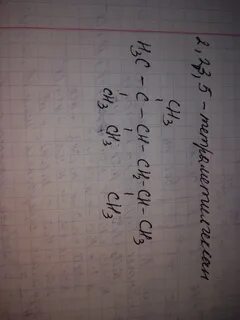 2,2,3,5 - тетраметилгексан
CH₃
H₃C - C - CH - CH₂ - CH - CH₃
CH₃ CH₃ CH₃